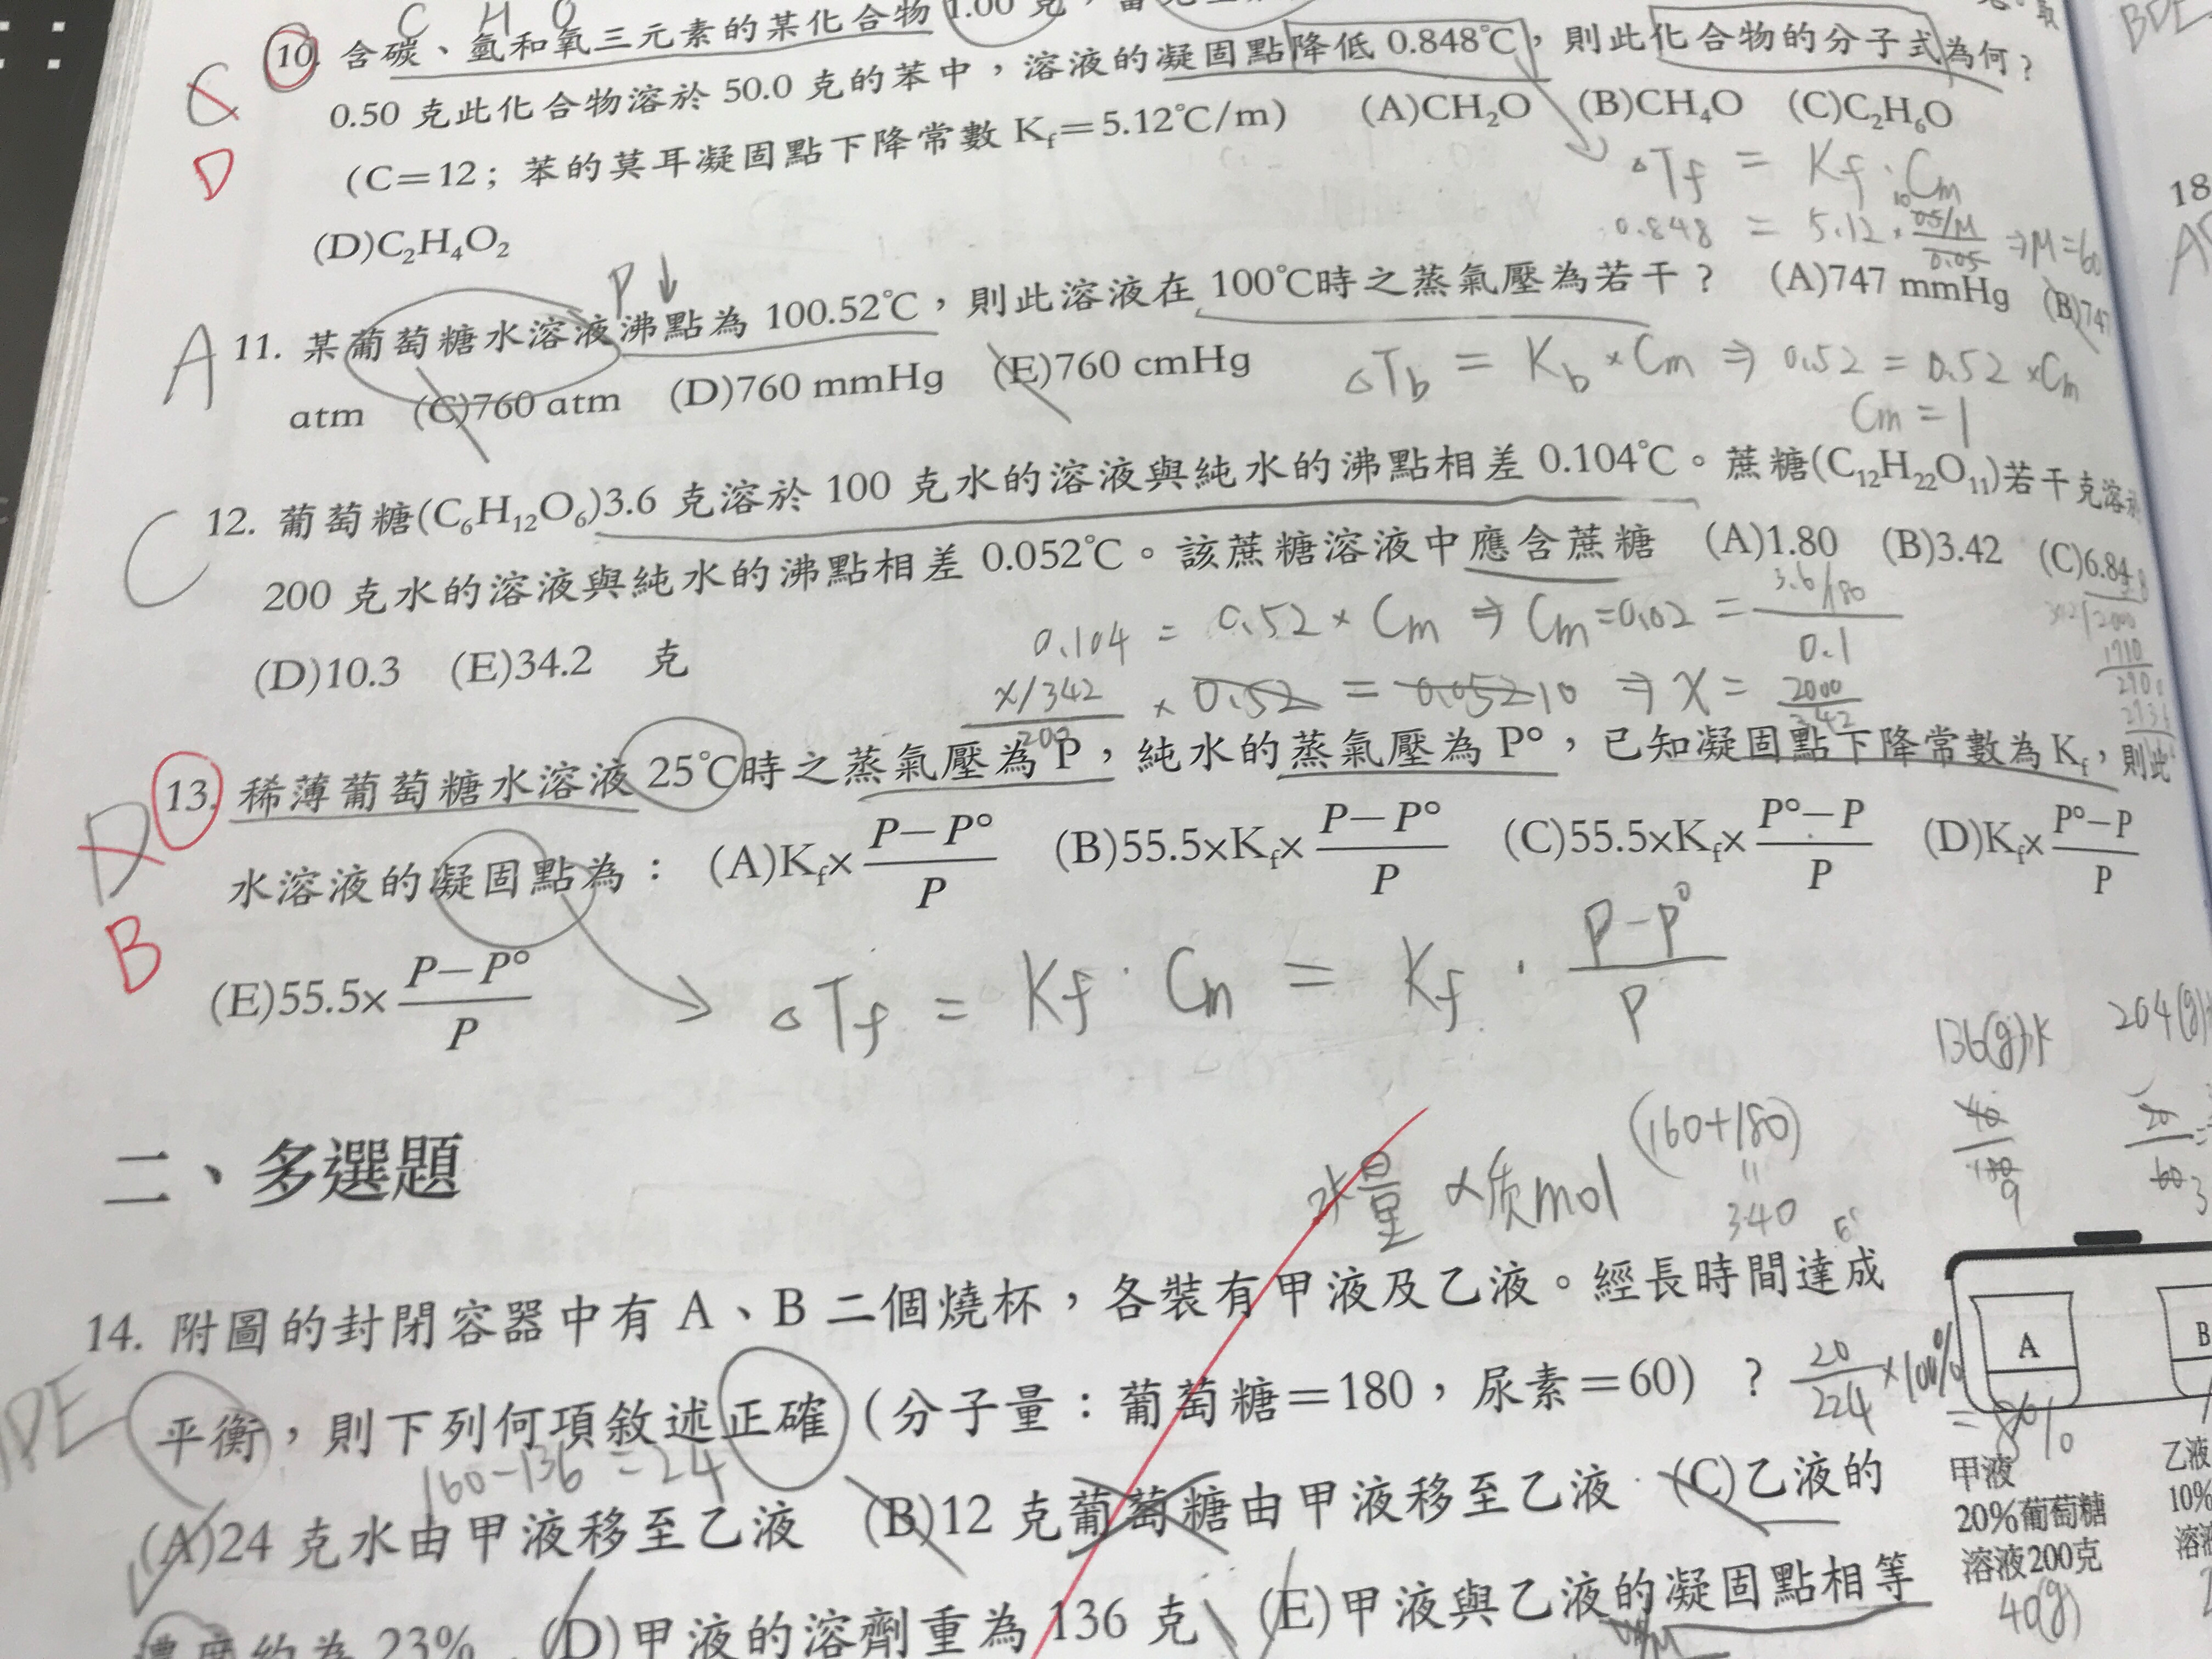 C H O
10. 含碳、氫和氧三元素的某化合物 1.00 克，當
0.50 克此化合物溶於 50.0 克的苯中，溶液的凝固點降低 0.848℃，則此化合物的分子式為何？
(C=12；苯的莫耳凝固點下降常數 Kf=5.12℃/m) (A)CH₂O (B)CH₄O (C)C₂H₆O
(D)C₂H₄O₂
C
D
△Tf = Kf · Cm
0.848 = 5.12 · 0.5/M / 0.05 ⇒ M=60
P↓
A
11. 某葡萄糖水溶液沸點為 100.52℃，則此溶液在 100℃時之蒸氣壓為若干？ (A)747 mmHg (B)747
atm (C)760 atm (D)760 mmHg (E)760 cmHg
△Tb = Kb × Cm ⇒ 0.52 = 0.52 × Cm
Cm = 1
C
12. 葡萄糖(C₆H₁₂O₆)3.6 克溶於 100 克水的溶液與純水的沸點相差 0.104℃。蔗糖(C₁₂H₂₂O₁₁)若干克溶於
200 克水的溶液與純水的沸點相差 0.052℃。該蔗糖溶液中應含蔗糖 (A)1.80 (B)3.42 (C)6.84
(D)10.3 (E)34.2 克
0.104 = 0.52 × Cm ⇒ Cm = 0.02 = 3.6/180 / 0.1
x/342 / 200 × 0.52 = 0.052 10 ⇒ x = 2000 / 342
D
B
13. 稀薄葡萄糖水溶液 25℃時之蒸氣壓為 P，純水的蒸氣壓為 P°，已知凝固點下降常數為 Kf，則此
水溶液的凝固點為： (A)Kf× P−P° / P (B)55.5×Kf× P−P° / P (C)55.5×Kf× P°−P / P (D)Kf× P°−P / P
(E)55.5× P−P° / P
△Tf = Kf · Cm = Kf · P−P° / P
136(g)水 204(g)
二、多選題
水量 ∝ 质mol (160+180)
340
14. 附圖的封閉容器中有 A、B 二個燒杯，各裝有甲液及乙液。經長時間達成
平衡，則下列何項敘述正確（分子量：葡萄糖=180，尿素=60）？
20 / 224 × 100%
160−136 = 24
(A)24 克水由甲液移至乙液 (B)12 克葡萄糖由甲液移至乙液 (C)乙液的
濃度約為 23% (D)甲液的溶劑重為 136 克 (E)甲液與乙液的凝固點相等
A
B
甲液
20%葡萄糖
溶液200克
40(g)
乙液
10%
18